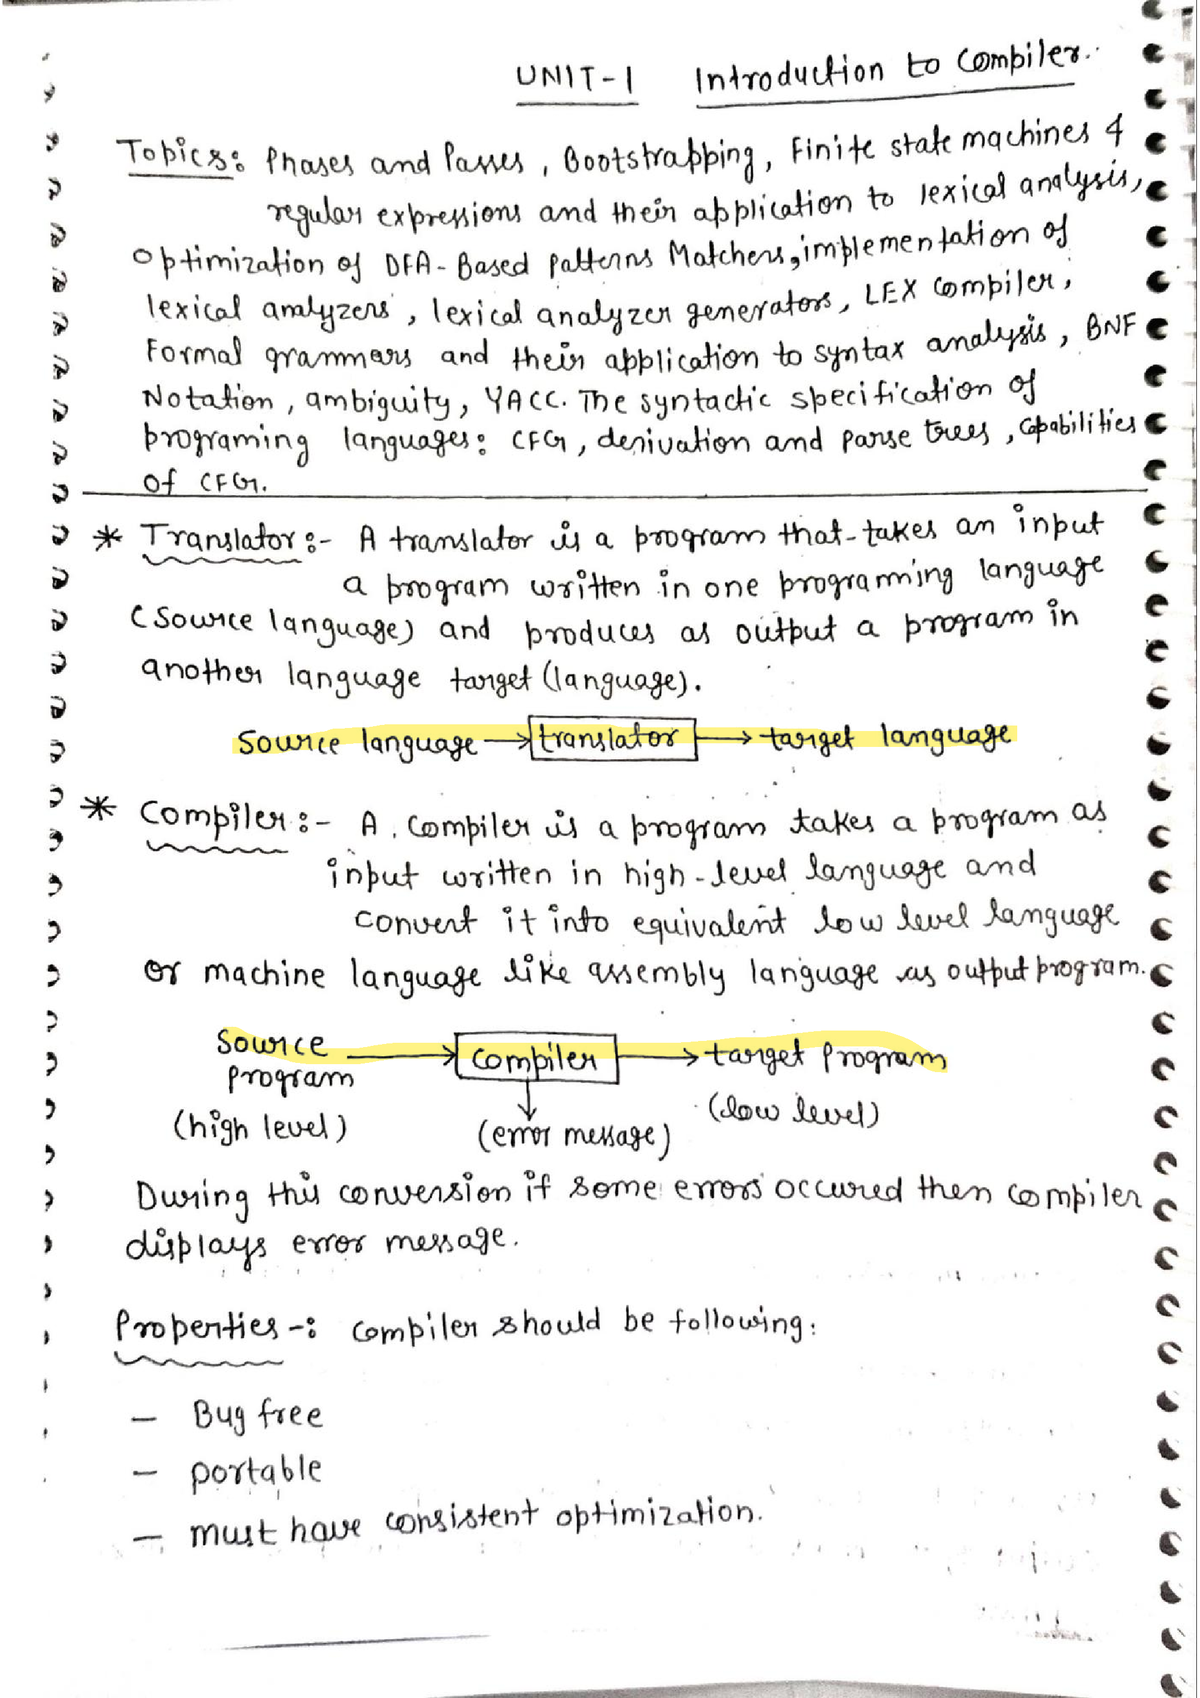 UNIT-1 Introduction to Compiler.
Topics: Phases and Passes, Bootstrapping, Finite state machines &
regular expressions and their application to lexical analysis,
Optimization of DFA-Based Patterns Matchers, implementation of
lexical analyzers, lexical analyzer generators, LEX compiler,
Formal grammars and their application to syntax analysis, BNF
Notation, ambiguity, YACC. The syntactic specification of
programing languages: CFG, derivation and Parse trees, capabilities
of CFG.
* Translator:- A translator is a program that takes an input
a program written in one programming language
(Source language) and produces as output a program in
another language target (language).
Source language → translator → target language
* Compiler:- A compiler is a program takes a program as
input written in high-level language and
convert it into equivalent low level language
or machine language like assembly language as output program.
Source program → compiler → target program
(high level) (error message) (low level)
During this conversion if some errors occured then compiler
displays error message.
Properties-: compiler should be following:
- Bug free
- portable
- must have consistent optimization.